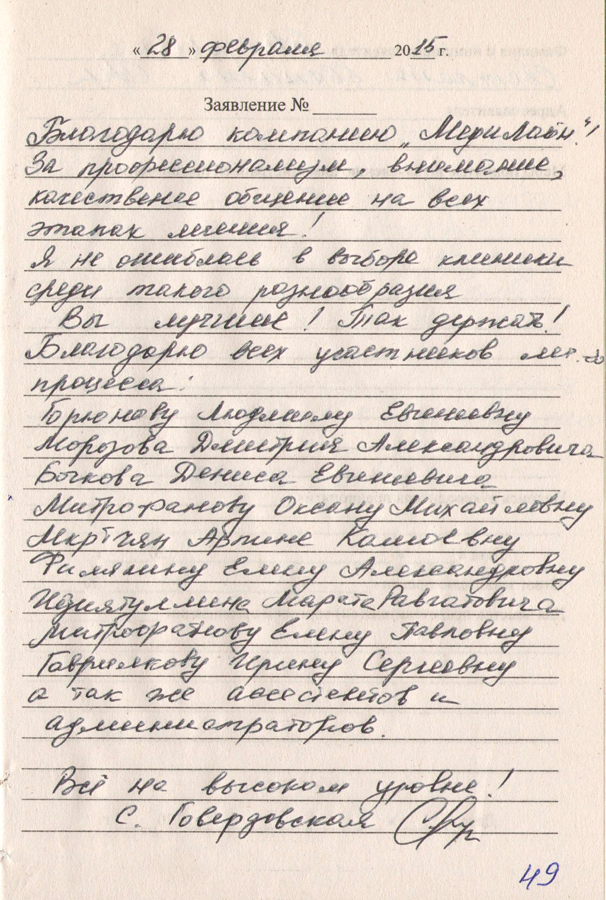 « 28 » февраля 2015 г.
Заявление №
Благодарю компанию „МедиЛайн“!
За профессионализм, внимание,
качественое общение на всех
этапах лечения!
Я не ошиблась в выборе клиники
среди такого разнообразия
Вы лучшие! Так держать!
Благодарю всех участников
процесса:
Горюнову Людмилу Евгеневну
Морозова Дмитрия Александровича
Бочкова Дениса Евгеневича
Митрофанову Оксану Михайловну
Мкртчян Арпине Камоевну
Фимякину Елену Александровну
Марата Равгатовича
Митрофанову Елену Павловну
Гаврилкову Ирину Сергеевну
а так же ассестентов и
администраторов.
Всё на высоком уровне!
С. Говердовская
49